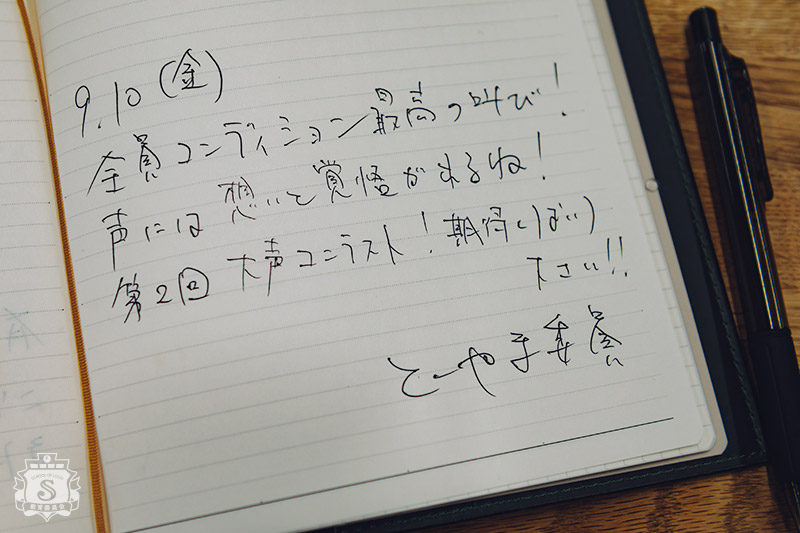 9.10(金)
全員コンディション最高の叫び!
声には想いと覚悟が来るね!
第2回 大声コンテスト!期待しば(い)
下さい!!
とーやま委員
S